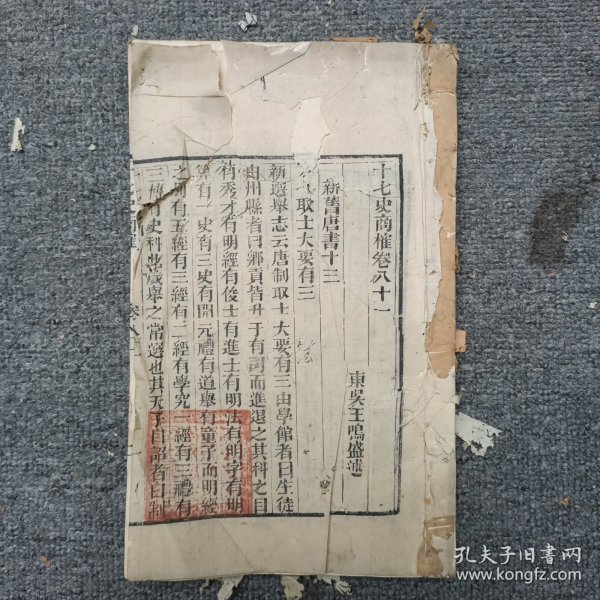 十七史商榷卷八十一
東吳王鳴盛述
新舊唐書十三
取士大要有三
新選舉志云唐制取士大要有三由學館者曰生徒
由州縣者曰鄉貢皆升于有司而進退之其科之目
有秀才有明經有俊士有進士有明法有明字有明
算有一史有三史有開元禮有道舉有童子而明經
之別有五經有三經有二經有學究一經有三禮有
三傳有史科此歲舉之常選也其天子自詔者曰制
卷八十一
孔夫子旧书网
www.kongfz.com